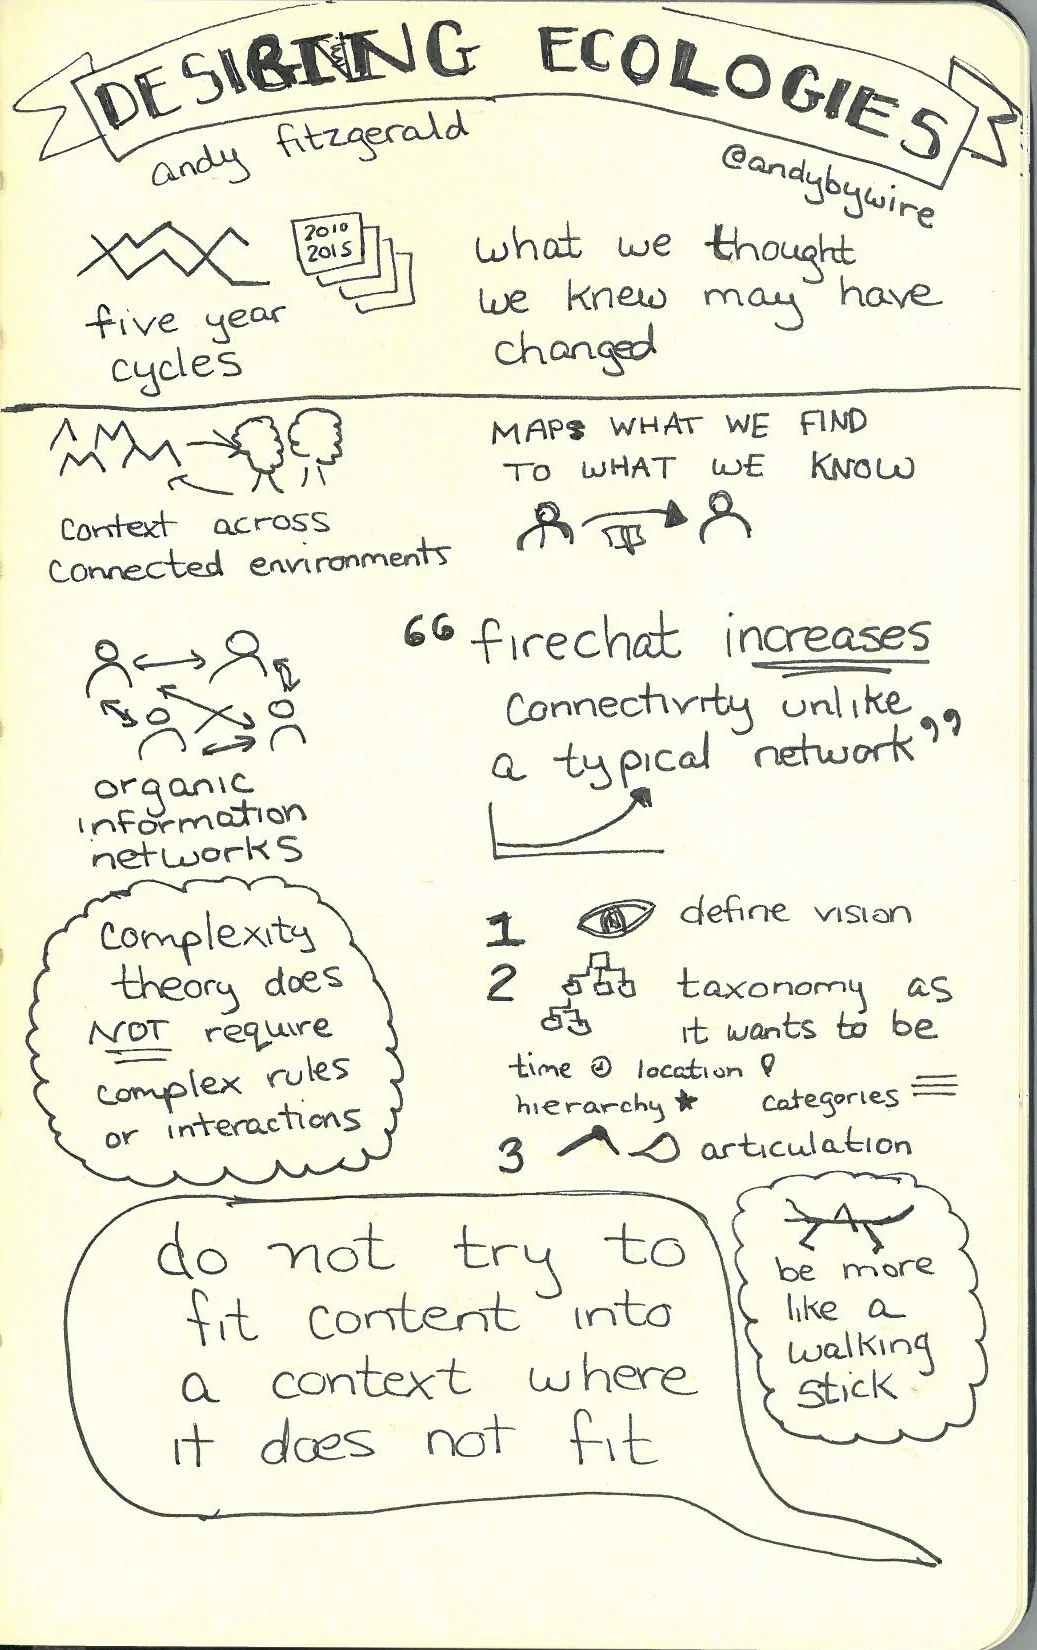 DESIGNING ECOLOGIES
andy fitzgerald
@andybywire
2010
2015
five year
cycles
what we thought
we knew may have
changed
context across
connected environments
MAPS WHAT WE FIND
TO WHAT WE KNOW
organic
information
networks
“firechat increases
connectivity unlike
a typical network”
complexity
theory does
NOT require
complex rules
or interactions
1 define vision
2 taxonomy as
it wants to be
time location
hierarchy categories
3 articulation
do not try to
fit content into
a context where
it does not fit
be more
like a
walking
stick